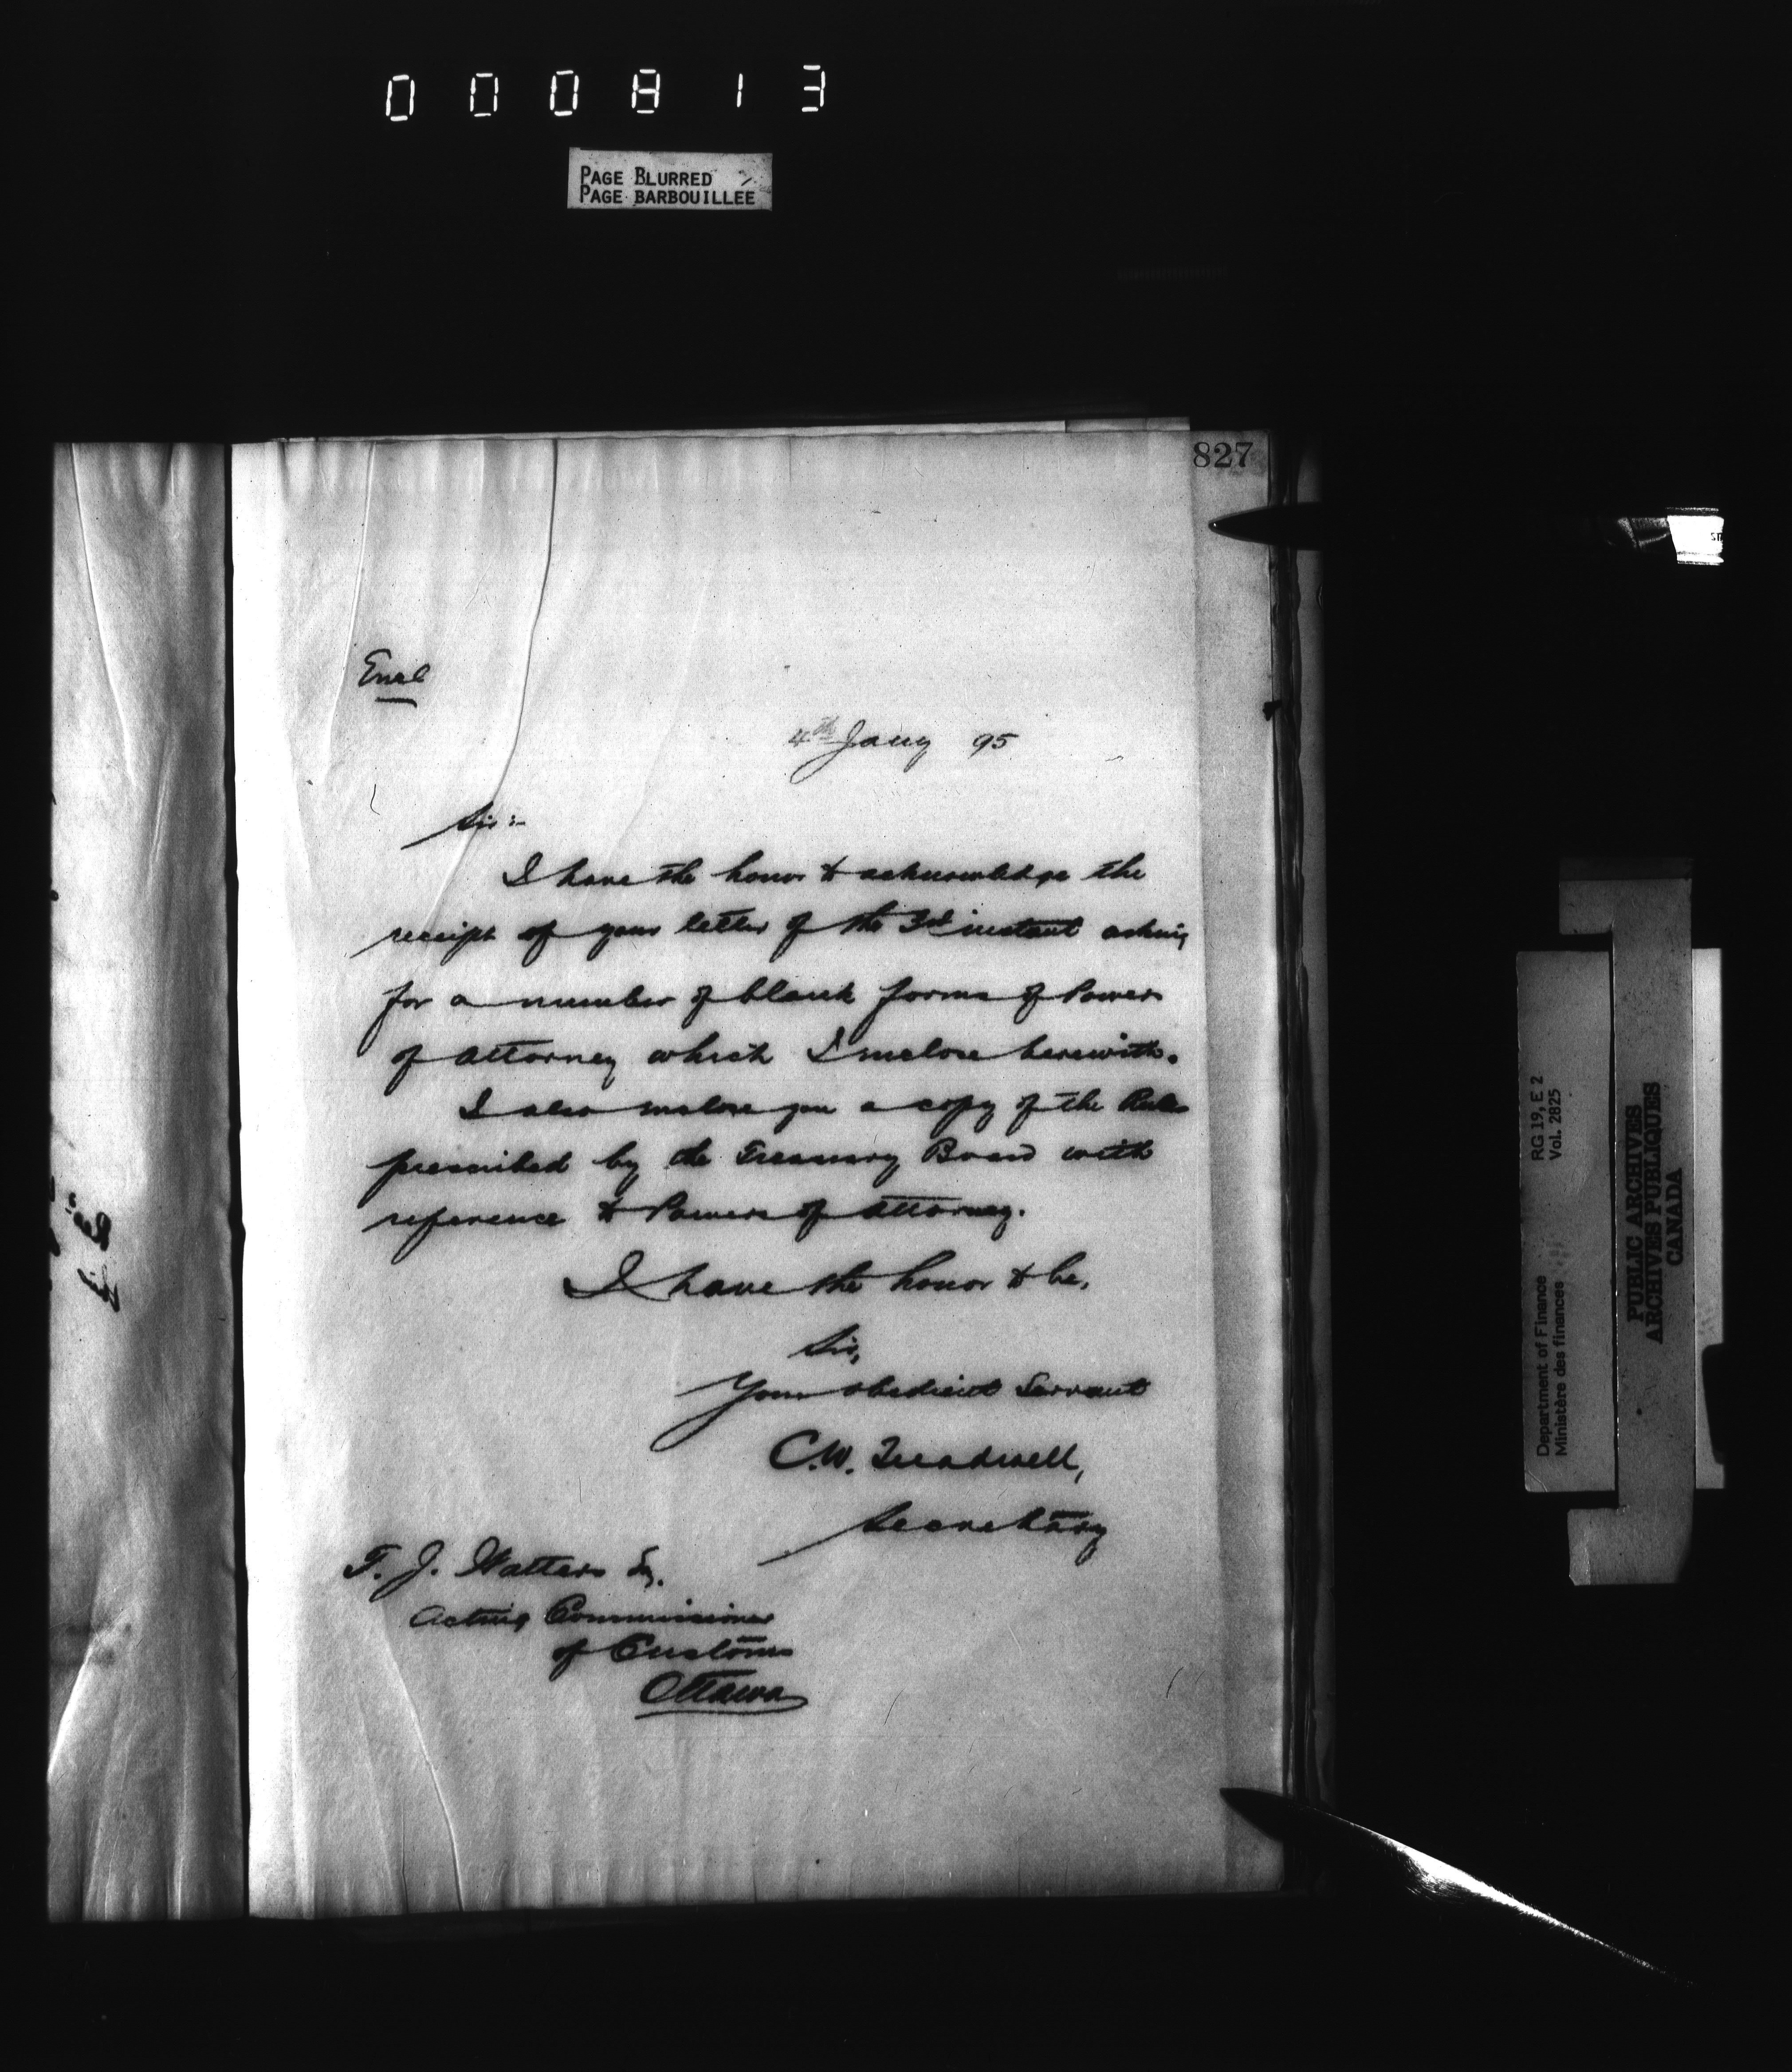 000813
PAGE BLURRED
PAGE BARBOUILLÉE
827
Encl
4th Jany 95
Sir:-
I have the honor to acknowledge the
receipt of your letter of the 3rd instant asking
for a number of blank forms of Power
of Attorney which I inclose herewith.
I also inclose you a copy of the Rules
prescribed by the Treasury Board with
reference to Powers of Attorney.
I have the honor to be,
Sir,
Your obedient Servant
C.W. Treadwell,
Secretary
T. J. Watters Esq.
Acting Commissioner
of Customs
Ottawa
Department of Finance RG 19, E 2
Ministère des finances Vol. 2825
PUBLIC ARCHIVES
ARCHIVES PUBLIQUES
CANADA